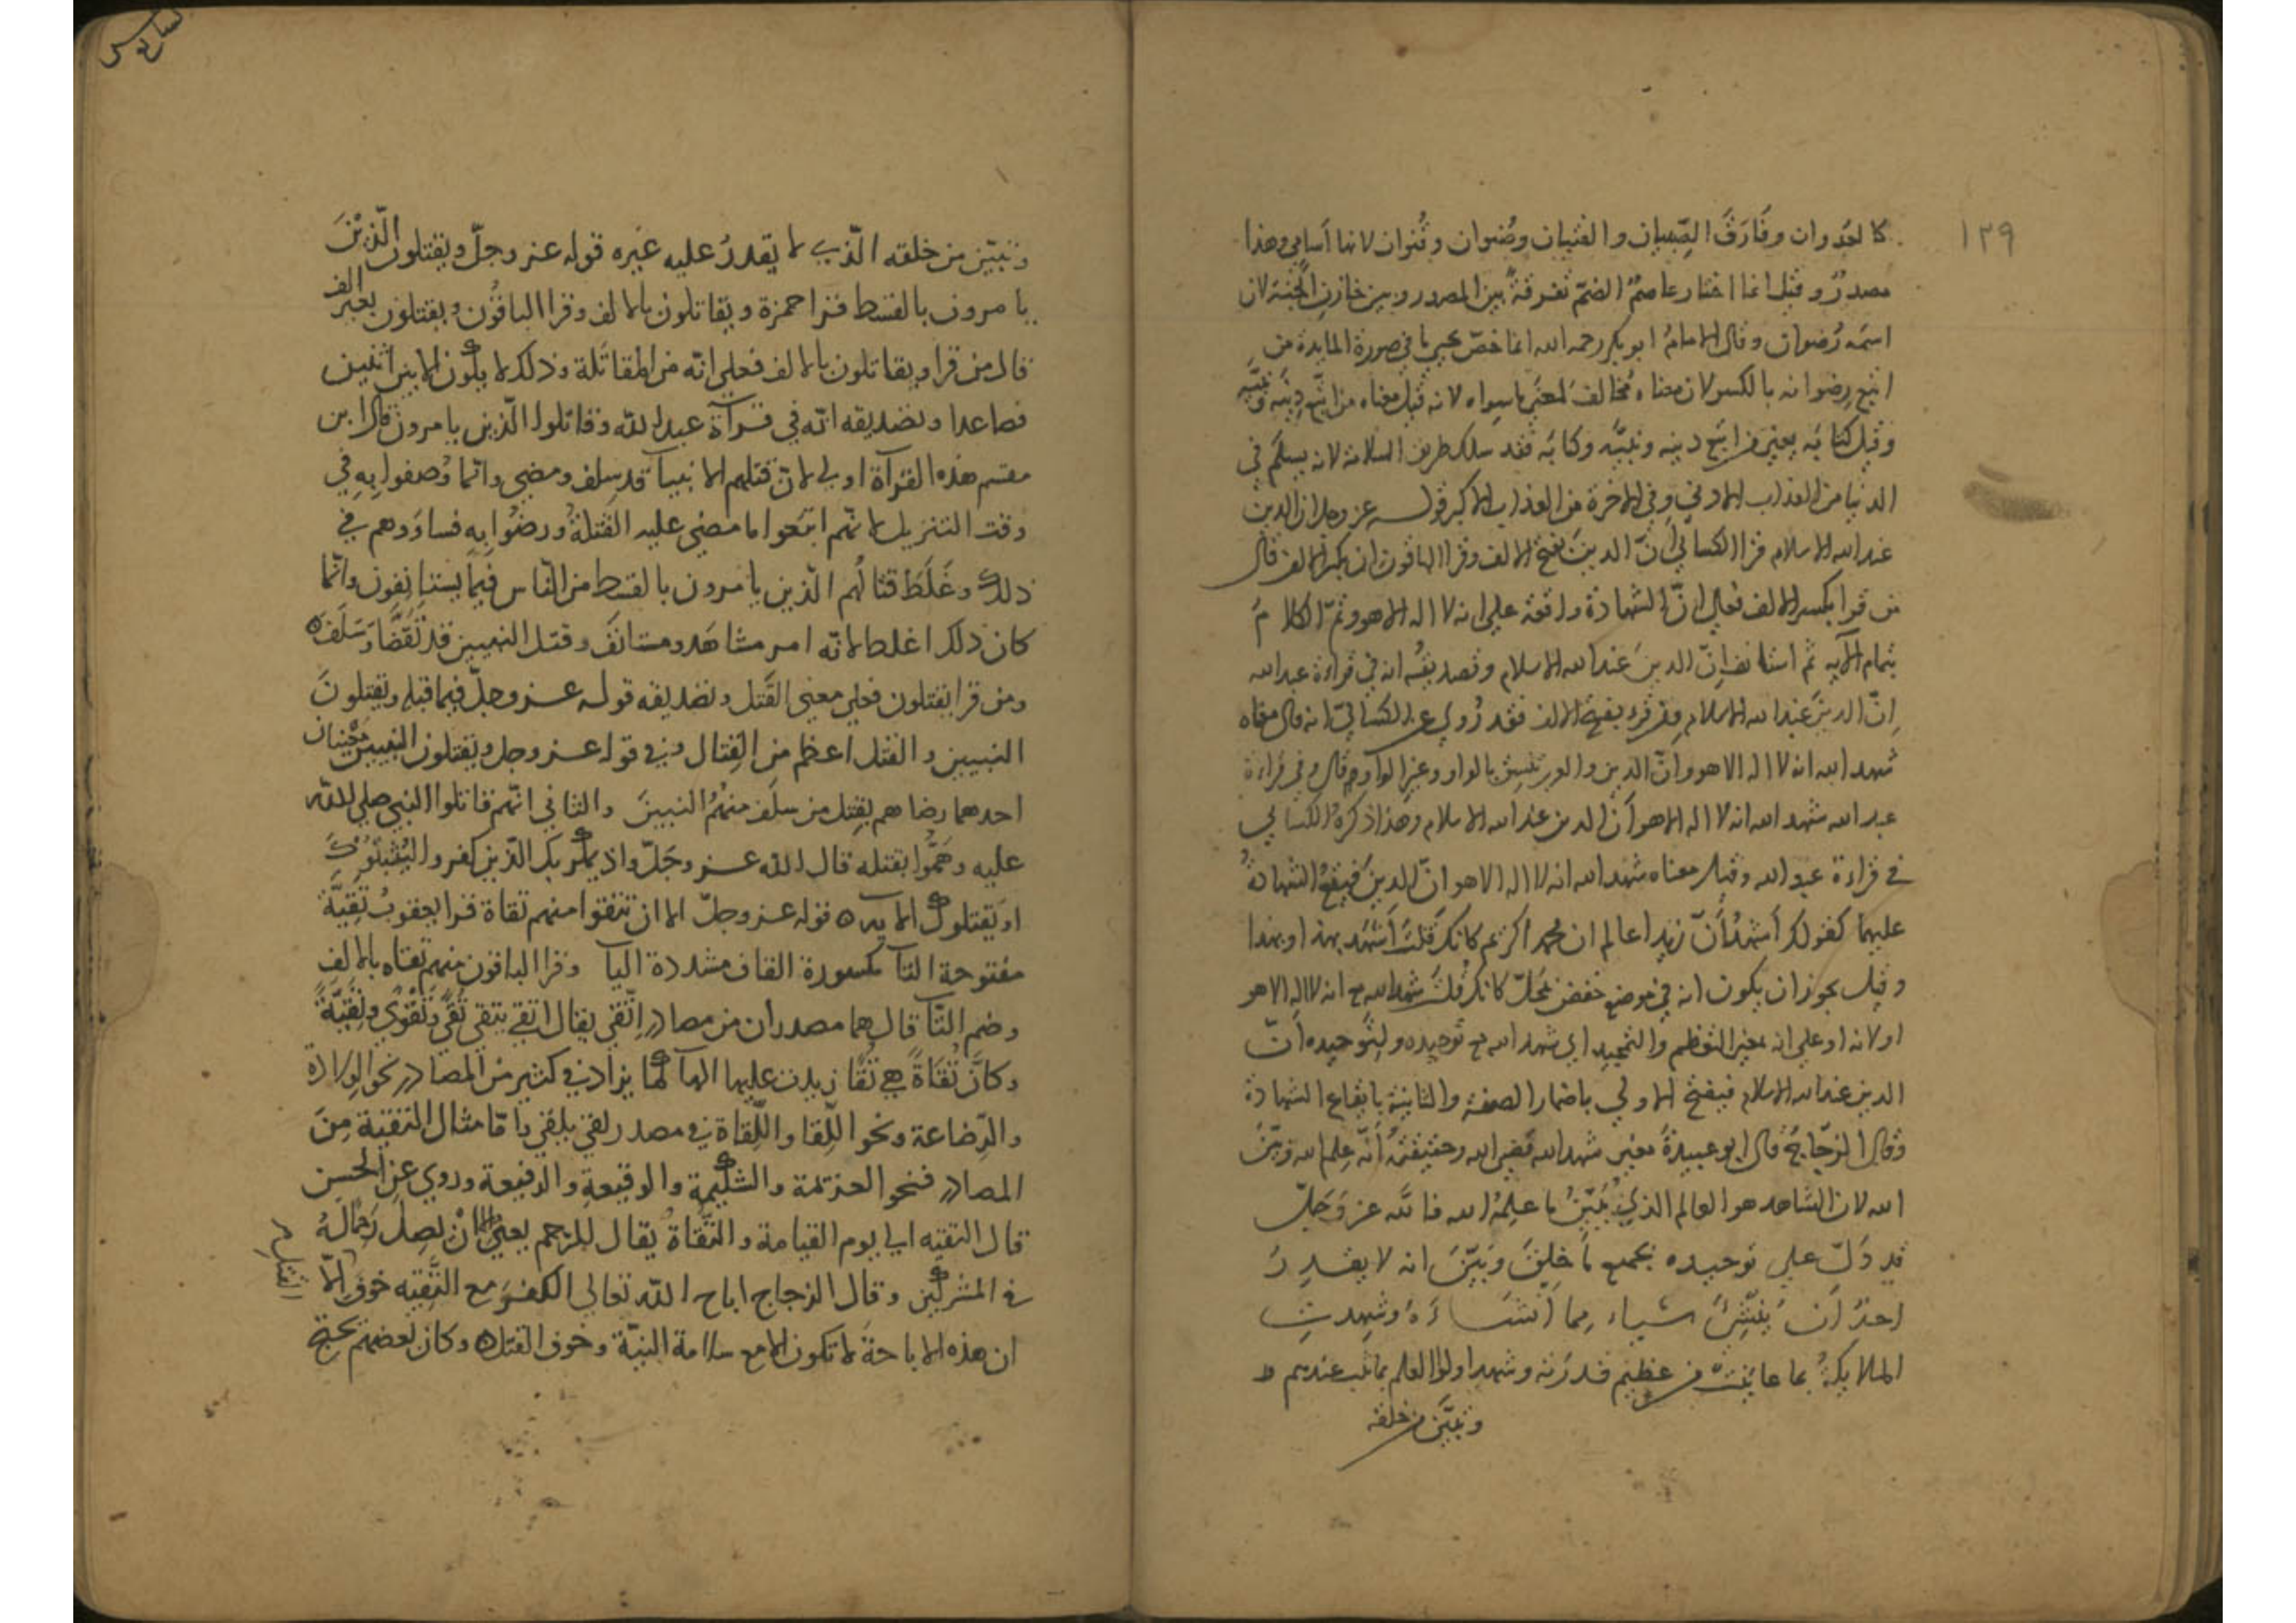 ١٣٩
كالعدوان وفارق الصبيان والفتيان وصنوان وقنوان لانها أسامي وهذا
مصدرٌ وقيل انما اختار عاصمٌ الضمّ تفرقةً بين المصدر وبين خازن الجنة لان
اسمَه رُضوان وقال الامامُ ابو بكر رحمه الله انما خصّ يحيى ما في صورة المايدة من
اتبع رِضوانه بالكسر لان معناه مُخالفٌ لمعنى ما سواه لانه قيل معناه من اتبع دينَه ونبيَّه
وقيل كتابَه يعني من اتبع دينه ونبيَّه وكتابَه فقد سلك طريق السلامة لانه يسلم في
الدنيا من العذاب الادنى وفي الاخرة من العذاب الاكبر قوله عز وجل ان الدين
عند الله الاسلام قرا الكسائي أنّ الدينَ بفتح الالف وقرا الباقون ان بكسر الالف قال
من قرا بكسر الالف فعلى انّ الشهادة واقعة على انه لا اله الا هو وثمّ الكلامُ
بتمام الآية ثم استأنف إنّ الدينَ عند الله الاسلام وتصديقُه انه في قراءة عبد الله
إنّ الدينَ عند الله الاسلام ومن قرا بفتح الالف فقد رُوي عن الكسائيّ انه قال معناه
شهد الله انه لا اله الا هو وانّ الدين والعرب بالواو وغير الواو قال وفي قراءة
عبد الله شهد الله انه لا اله الا هو أن الدين عند الله الاسلام وهذا ذكرهُ الكسائي
في قراءة عبد الله وقيل معناه شهد الله انه لا اله الا هو انّ الدينَ فيقعُ الشهادةُ
عليهما كقولك أشهدُ أنّ زيدا عالم ان محمدا كريم كانك قلتَ أشهد بهذا وبهذا
وقيل يجوز ان يكون انه في موضع خفض محلّ كانك قلتَ شهد الله انه لا اله الا هو
او لانه او على انه بمعنى التعظيم والتمجيد اي شهد الله مع توحيده ولتوحيده أنّ
الدين عند الله الاسلام فيفتح الاولى باضمار الصفة والثانية بايقاع الشهادة
وقال الزجّاجُ قال ابو عبيدةَ معنى شهد الله قضى الله وحقيقتُهُ أنّه علم الله وبيّنَ
الله لان الشاهد هو العالم الذي يُبيّنُ ما علِمهُ الله فالله عز وَجَلّ
قد دَلّ على توحيده بجميع ما خلقَ وبَيّنَ انه لا يقدِرُ
احدٌ أن يُنشِئَ شياء مما أنشَاءَهُ وشهِدتِ
الملايكةُ بما عاينَتْ من عظيم قدرته وشهد اولوا العلم بما ثبت عندهم
وتبيّن من خلقه
وتبيّن من خلقه الّذي لا يقدرُ عليه غيره قوله عز وجلّ ويقتلون الّذينَ
يامرون بالقسط قرا حمزة ويقاتلون بالالف وقرا الباقون ويقتلون بغير الف
قال من قرا ويقاتلون بالالف فعلى انّه من المقاتَلة وذلك لا يكون الا بين اثنين
فصاعدا وتصديقه انّه في قرآة عبد الله وقاتلوا الّذين يامرون قال ابن
مقسم هذه القرآة اولى لانّ قتلهم الانبيآ قد سلف ومضى وانّما وُصفوا به في
وقت التنزيل لانّهم اتبعوا ما مضى عليه القتلةُ ورضُوا به فساوَوهم في
ذلك وغَلَظَ قتالُهم الّذين يامرون بالقسط من النّاس فيما يستانِفون وانّما
كان ذلك اغلظ لانّه امر مشاهَد ومستانَف وقتل النبيين قد تَقَضَّا وَسَلَفَ ه
ومن قرا يقتلون فعلى معنى القَتل وتصديقه قوله عز وجلّ فيما قبله ويقتلونَ
النبيين والقتل اعظم من القِتال وفي قوله عز وجل ويقتلون النبيين معنيان
احدهما رضاهم بقتل من سلَف منهُمُ النبيينَ والثاني انّهم قاتلوا النبي صلى الله
عليه وهَمُّوا بقتله قال الله عز وجَلّ واذ يمكر بك الّذين كفروا ليُثبتوكَ
او يقتلوك الآيه ه قوله عز وجلّ الا ان تتقوا منهم تقاة قرا يعقوبُ تَقِيَّة
مفتوحة التآ مكسورة القاف مشددة اليآ وقرا الباقون منهم تقاه بالالف
وضم التّآ قال هما مصدران من مصادر اتّقى يقال اتقى يتقي تُقًى وتَقْوًى وتَقِيَّةً
وكانّ تُقَاةً هي تُقًا زيدت عليها الهآ كما يزاد في كثير من المصادر نحو الولادة
والرّضاعة ونحو اللّقا واللّقاة في مصدر لقي يلقى وامّا مثال التقية مِنَ
المصادر فنحو العزيمة والشكيمة والوقيعة والدفيعة وروي عن الحسن
قال التقيه الى يوم القيامة والتُّقاةُ يقال للرحم يعني الا انْ يصِلَ رحمًا لهُ
في المشركين وقال الزجاج اباح الله تعالى الكفر مع التَّقيه خوفَ القتل الّا
ان هذه الاباحةَ لا تكون الا مع سلامة النيّة وخوف القتل ه وكان بعضهم يحتج